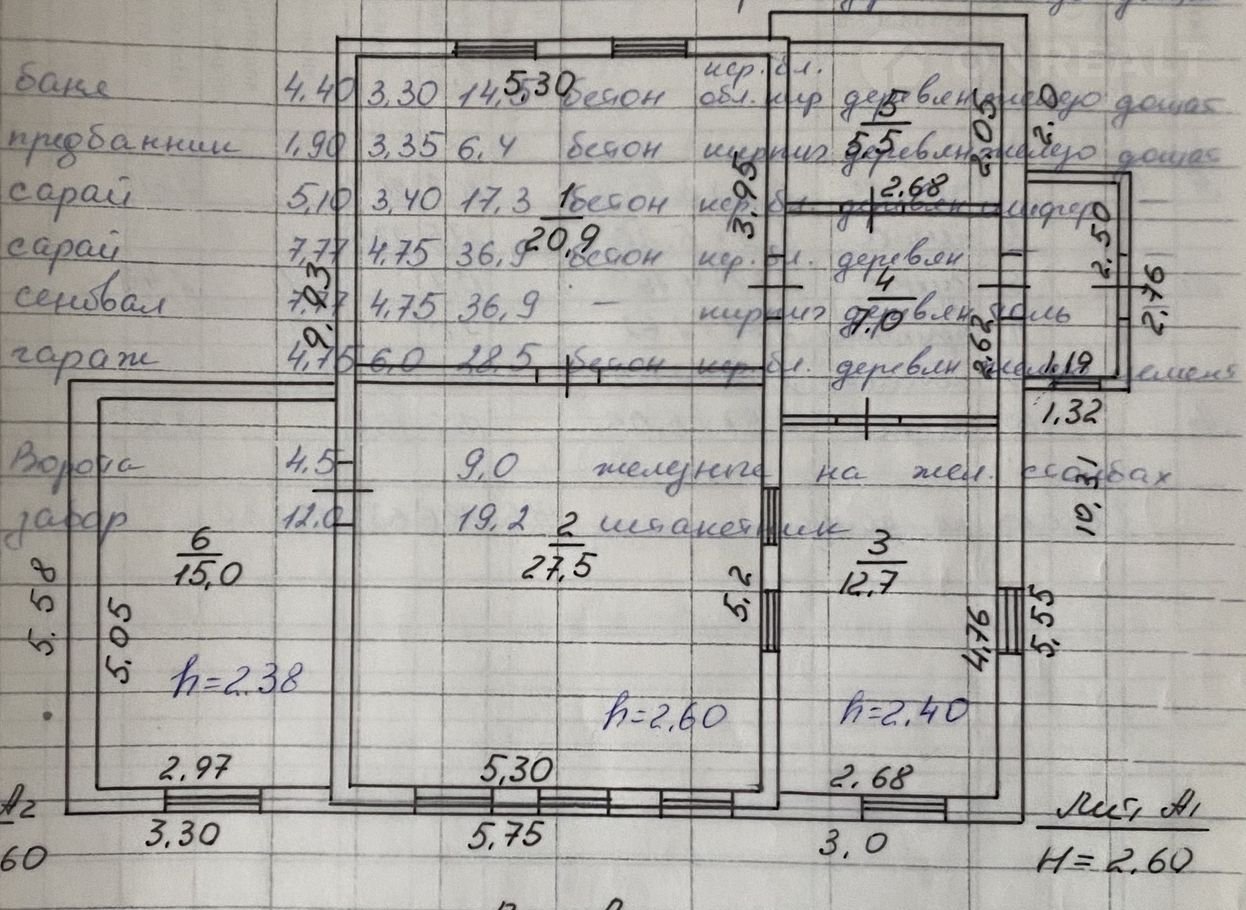 кер. бл.
баня 4.40 3.30 14,5 бетон обл. кир деревян железо дощат
предбанник 1,90 3,35 6,4 бетон кирпич деревян железо дощат
сарай 5,10 3,40 17,3 бетон кер. бл. деревян шифер —
сарай 7,77 4.75 36,9 бетон кер. бл. деревян
сеновал 7,77 4,75 36,9 — кирпич деревян толь
гараж 4,75 6,0 28,5 бетон кер. бл. деревян цемент
Ворота 4.5 9,0 железные на жел. столбах
забор 12,0 19,2 штакетник
5,30
5
5,5
2,05
2,0
2.68
3,95
1
20,9
9.03
4
7.0
2.62
2.50
2.76
1.19
1,32
10,31
6
15,0
2
27,5
3
12,7
5.58
5,05
5,2
4,76
5,55
h=2.38
h=2,60
h=2,40
2,97
5,30
2.68
3,30
5,75
3,0
А2
60
Лит, А1
H=2.60